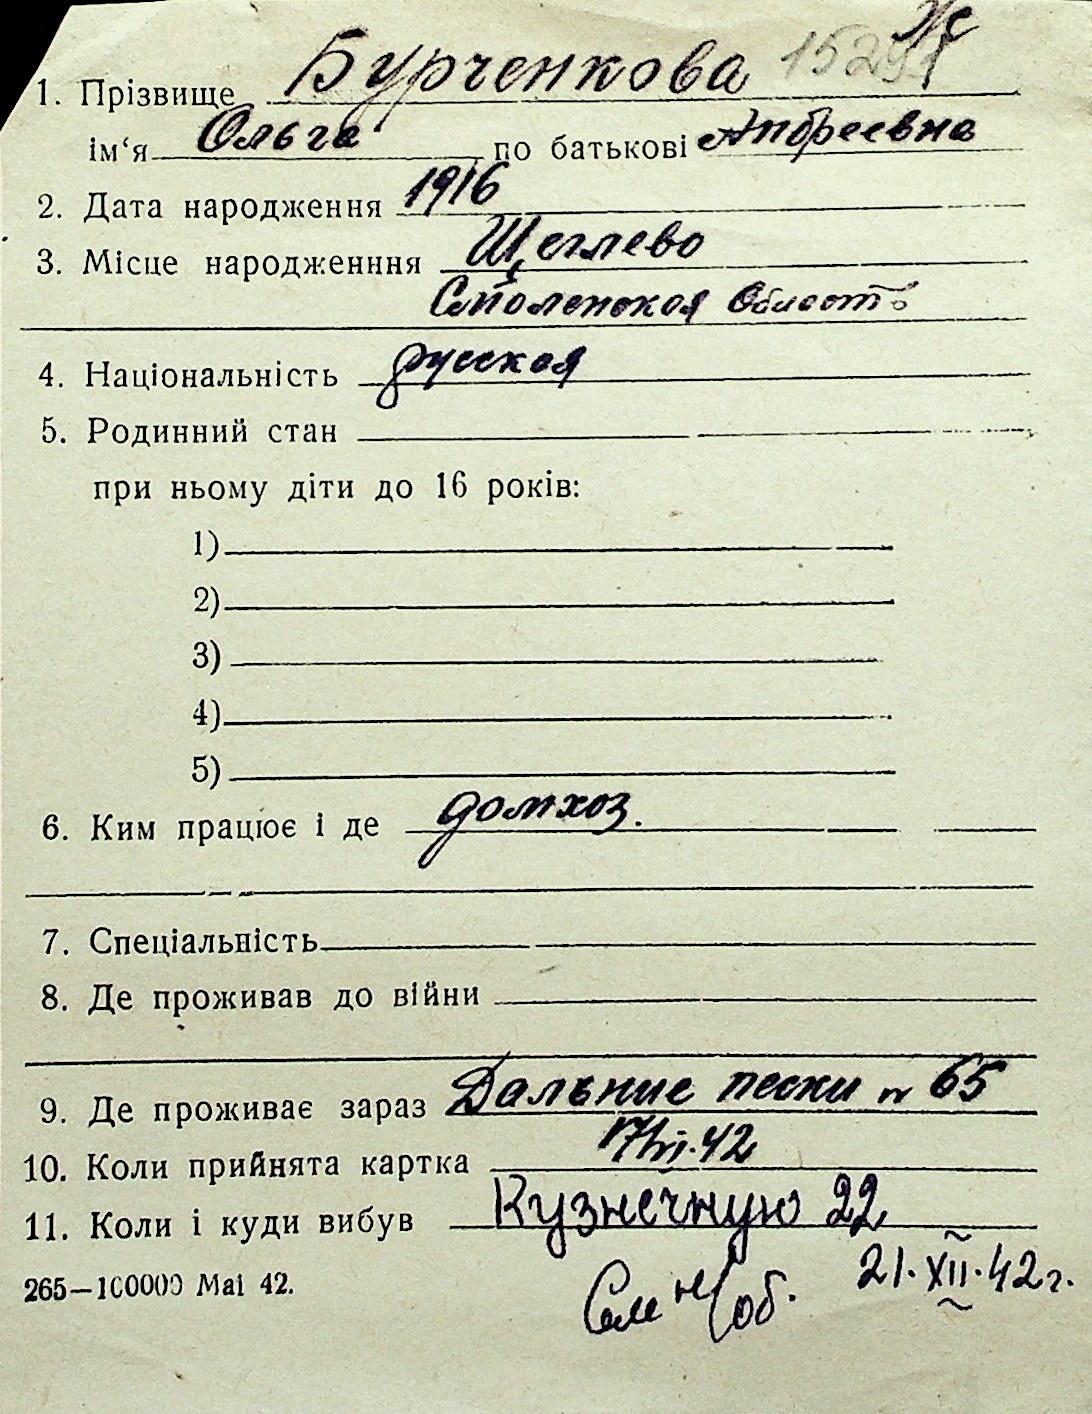 Ж
1. Прізвище Бурченкова
ім‘я Ольга по батькові Андреевна
2. Дата народження 1916
3. Місце народженння Щеглево
Смоленская Область
4. Національність русская
5. Родинний стан
при ньому діти до 16 років:
1)
2)
3)
4)
5)
6. Ким працює і де домхоз.
7. Спеціальність
8. Де проживав до війни
9. Де проживає зараз Дальние пески № 65
10. Коли прийнята картка 17/VI.42
11. Коли і куди вибув Кузнечную 22
265—100000 Mai 42.
21.XII.42г.